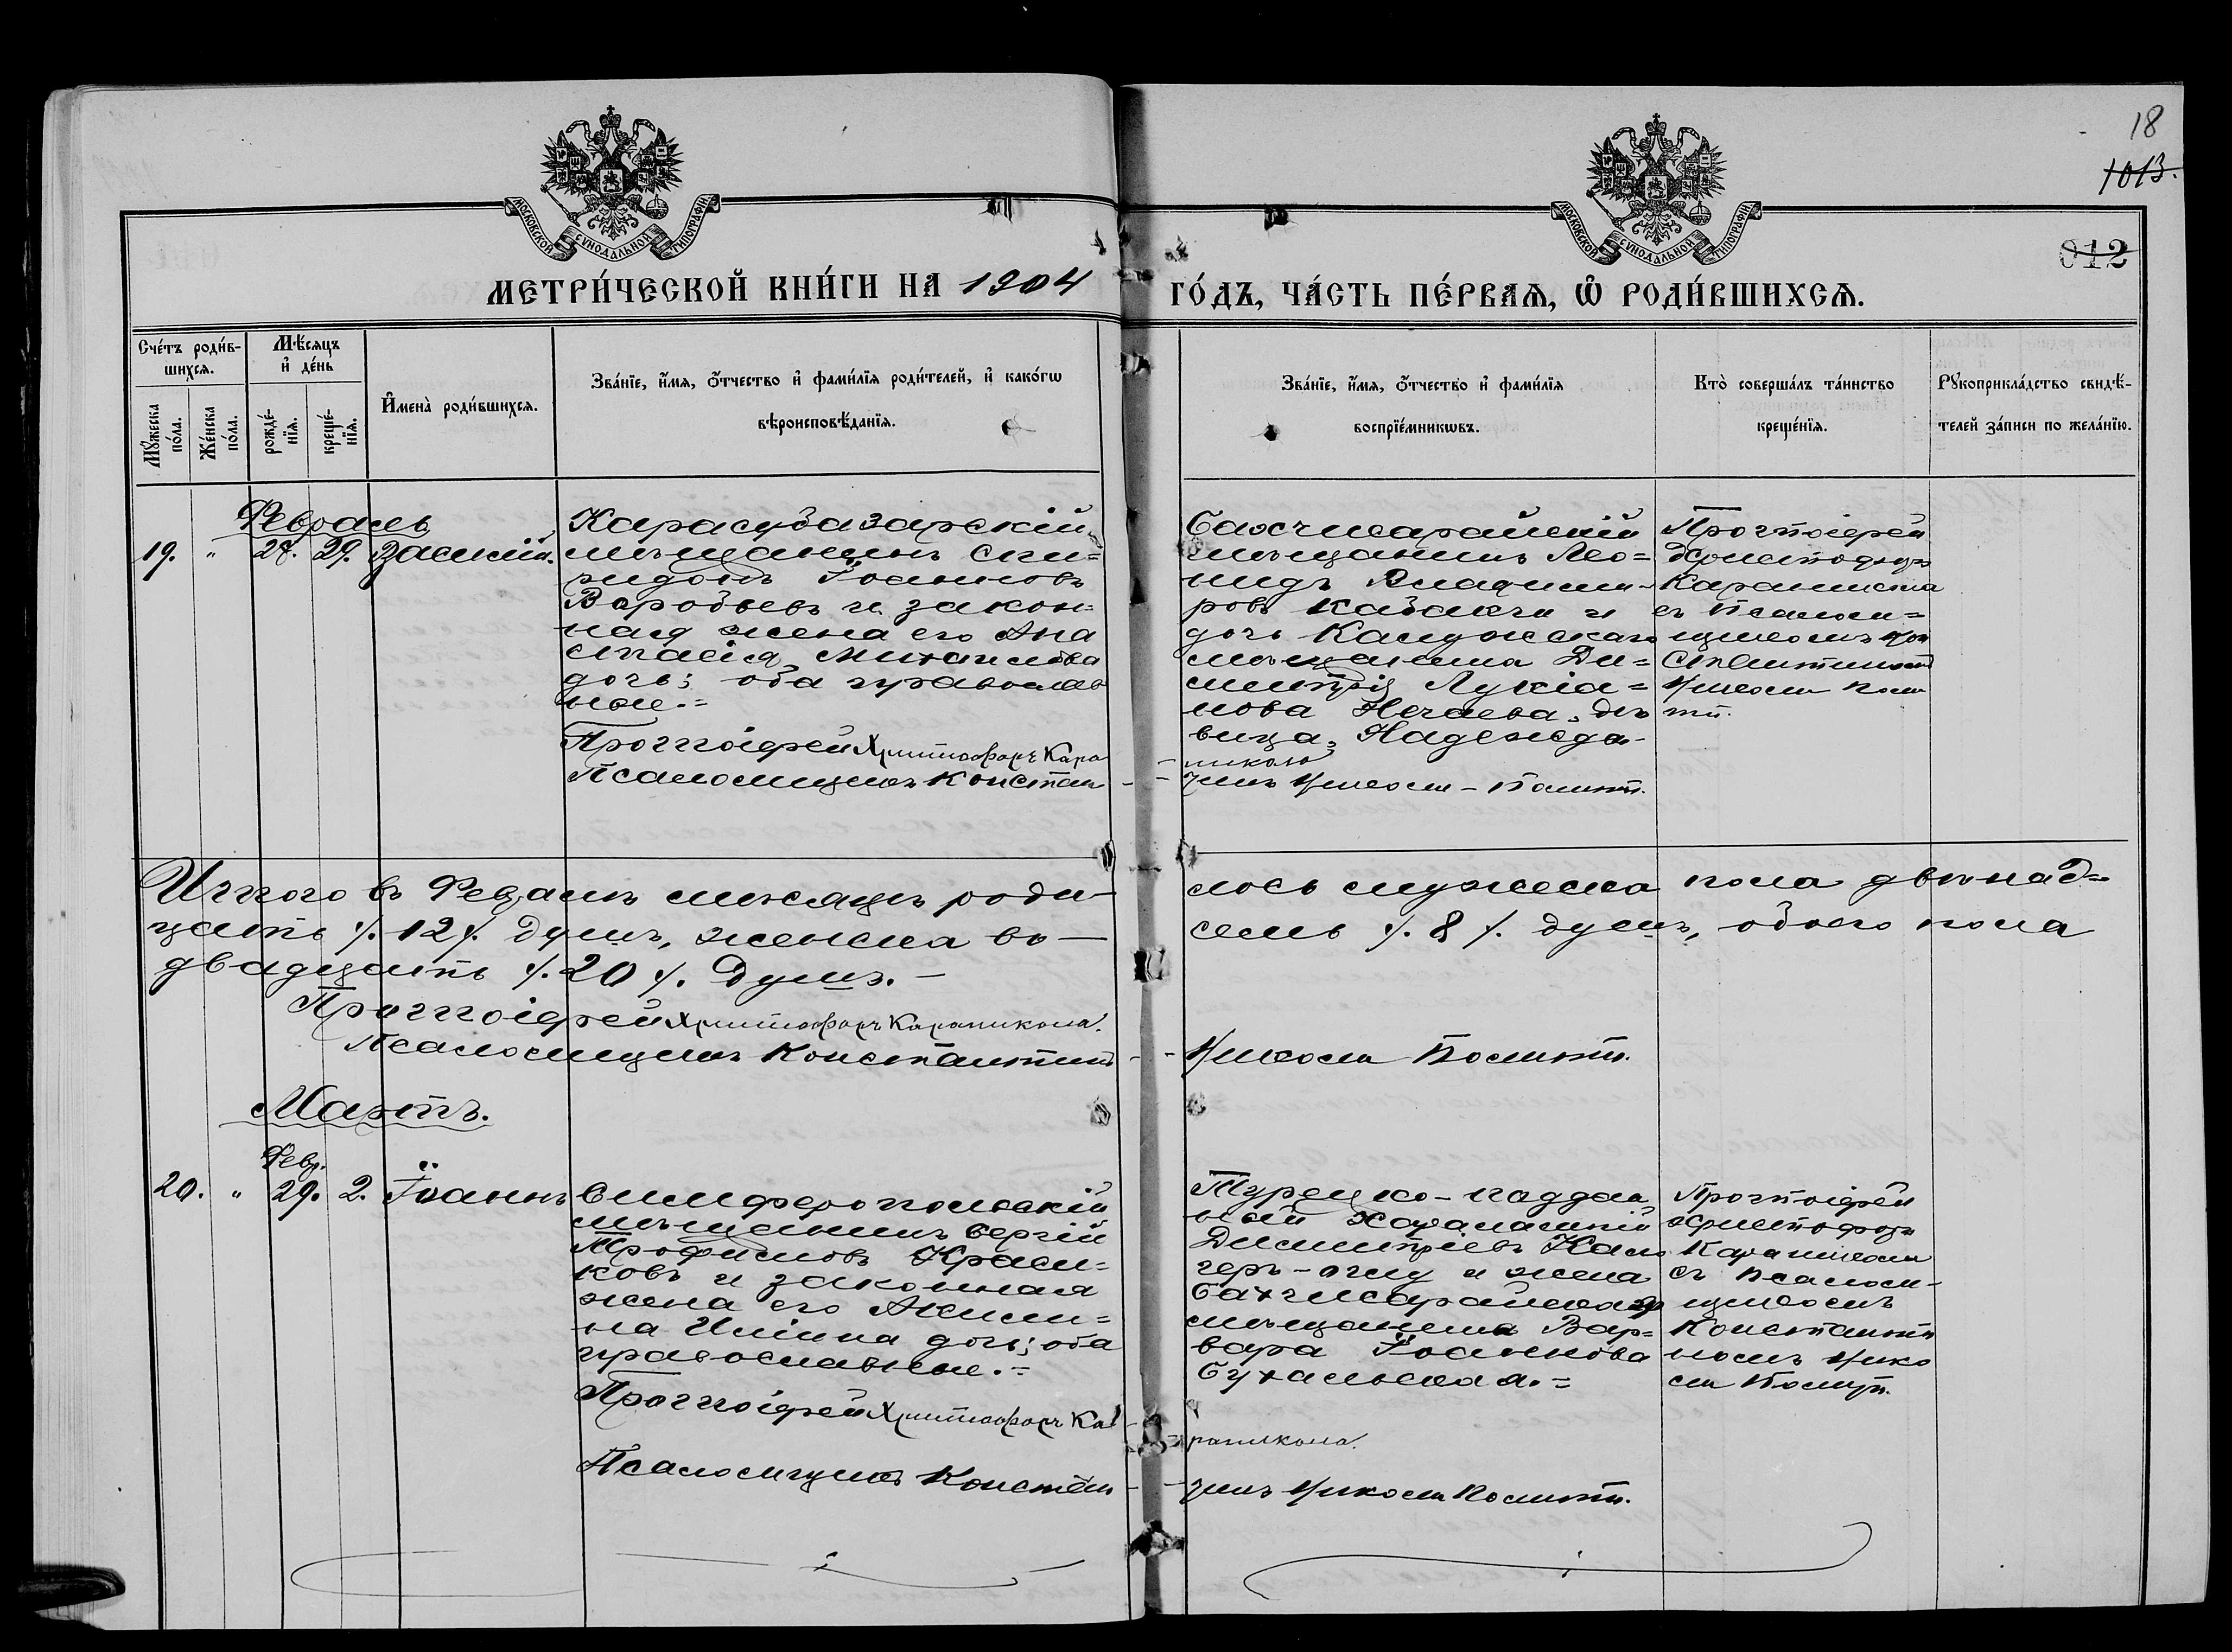 18
1013.
012
МОСКОВСКОЙ СѴНОДАЛЬНОЙ ТИПОГРАФІИ
МОСКОВСКОЙ СѴНОДАЛЬНОЙ ТИПОГРАФІИ
МЕТРИ́ЧЕСКОЙ КНИ́ГИ НА 1904 ГО́ДЪ, ЧА́СТЬ ПЕ́РВАѦ, Ѡ҆ РОДИ́ВШИХСѦ.
Сче́тъ роди́в-
шихсѧ.
Мꙋ́жеска по́ла.
Же́нска по́ла.
Мѣ́сѧцъ и҆ де́нь
рожде́-
нїѧ.
креще́-
нїѧ.
И҆мена̀ роди́вшихсѧ.
Зва́нїе, и҆́мѧ, ѻ҆́тчество и҆ фами́лїѧ роди́телей, и҆ како́гѡ
вѣроисповѣ́данїѧ.
Зва́нїе, и҆́мѧ, ѻ҆́тчество и҆ фами́лїѧ
воспрїе́мникѡвъ.
Кто̀ соверша́лъ та́инство
креще́нїѧ.
Рꙋкоприкла́дство свидѣ́-
телей за́писи по жела́нїю.
Февраль
19. " 28. 29. Василій.
Карасубазарскій
мѣщанинъ Спи=
ридонъ Іоанновъ
Воробьевъ и закон=
ная жена его Ана
стасія Михаилова
дочь; оба православ
ные.=
Протоіерей Христофоръ Кара
Псаломщикъ Констан -
Бахчисарайскій
мѣщанинъ Лео=
нидъ Владими-
ровъ и
дочь Калужскаго
мѣщанина Ди=
митрія Лукіа=
нова Нечаева, дѣ
вица, Надежда-
никола
тинъ Никола - Комитти.
Протоіерей
Христофоръ
Караникола
съ псалом=
щикомъ Кон
стантиномъ
Никола Коми
тти.
Итого въ Февралѣ мѣсяцѣ роди- лось мужеска пола двѣнад=
цать /. 12 /. душъ, женска во- семь /. 8 /. душъ, обоего пола
двадцать /. 20 /. душъ. -
Протоіерей Христофоръ Караникола.
Псаломщикъ Константинъ - - Никола Комитти.
Мартъ.
Февр.
20. " 29. 2. Іоаннъ
Симферопольскій
мѣщанинъ Сергій
Трофимовъ Краси=
ковъ и законная
жена его Акили=
на Иліина дочь; оба
православные.=
Протоіерей Христофоръ Ка -
Псаломщикъ Констан -
Турецко-поддан
ный Харалампій
Димитріевъ
и жена
Бахчисарайская
мѣщанка Вар=
вара Іоаннова
=
раникола.
тинъ Никола Комитти.
Протоіерей
Христофоръ
Караникола
съ псалом-
щикомъ
Константи
номъ Нико
ла Комитти.